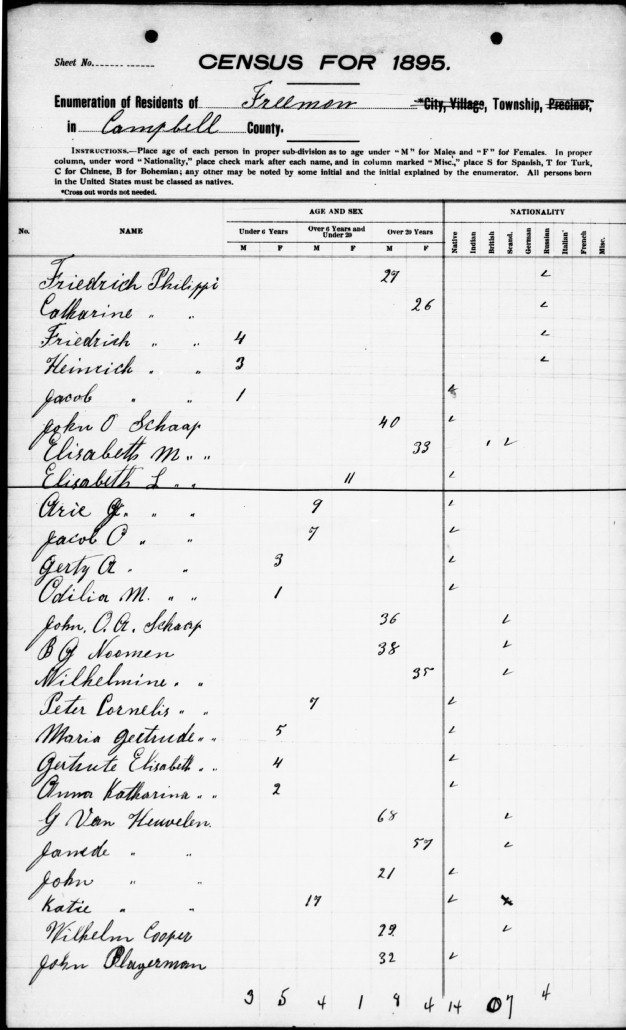 Sheet No.
CENSUS FOR 1895.
Enumeration of Residents of Freemon *City, Village, Township, Precinct,
in Campbell County.
INSTRUCTIONS.—Place age of each person in proper sub-division as to age under "M" for Males and "F" for Females. In proper
column, under word "Nationality," place check mark after each name, and in column marked "Misc.," place S for Spanish, T for Turk,
C for Chinese, B for Bohemian; any other may be noted by some initial and the initial explained by the enumerator. All persons born
in the United States must be classed as natives.
*Cross out words not needed.
AGE AND SEX NATIONALITY
No. NAME Under 6 Years Over 6 Years and Under 20 Over 20 Years Native Indian British Scand. German Russian Italian French Misc.
M F M F M F
Friedrich Philippi 27 ✓
Catharine " " 26 ✓
Friedrich " " 4 ✓
Heinrich " " 3 ✓
Jacob " " 1 ✓
John O Schaap 40 ✓
Elisabeth M " " 33 ✓
Elisabeth L " " 11 ✓
Arie G. " " 9 ✓
Jacob O " " 7 ✓
Gerty A " " 3 ✓
Odilia M. " " 1 ✓
John. O. A. Schaap 36 ✓
B G Noomen 38 ✓
Wilhelmine " " 35 ✓
Peter Cornelis " " 7 ✓
Maria Gertrude " " 5 ✓
Gertrute Elisabeth " " 4 ✓
Anna Katharina " " 2 ✓
G Van Heuvelen 68 ✓
" " 57 ✓
John " " 21 ✓
Katie " " 17 ✓
Wilhelm Cooper 29 ✓
John 32 ✓
3 5 4 1 8 4 14 07 4